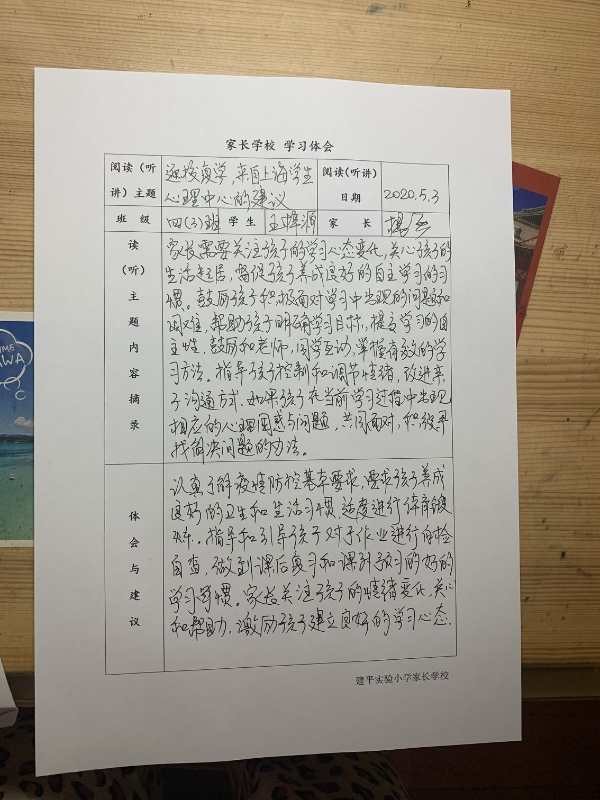 家长学校 学习体会
阅读（听讲）主题
迎接复学，来自上海学生
心理中心的建议
阅读（听讲）日期
2020.5.3
班 级
四（3）班
学 生
王
源
家 长
杨
读（听）主题内容摘录
家长需要关注孩子的学习心态变化，关心孩子的
生活起居，督促孩子养成良好的自主学习的习
惯。鼓励孩子积极面对学习中出现的问题和
困难，帮助孩子明确学习目标，提高学习的自
主性，鼓励和老师，同学互动，掌握有效的学
习方法。指导孩子控制和调节情绪，改进亲
子沟通方式，如果孩子在当前学习过程中出现
相应的心理困惑与问题，共同面对，积极寻
找解决问题的办法。
体会与建议
认真了解疫情防控基本要求，要求孩子养成
良好的卫生和生活习惯，适度进行体育锻
炼，指导和引导孩子对于作业进行自检
自查，做到课后复习和课前预习的好的
学习习惯。家长关注孩子的情绪变化，关心
和帮助，激励孩子建立良好的学习心态.
建平实验小学家长学校
AWA